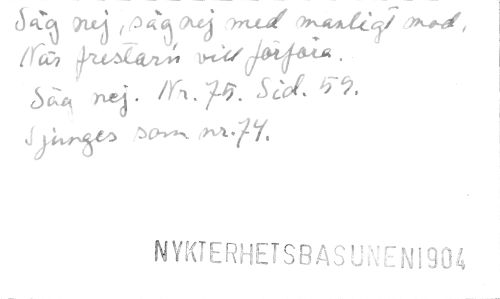 Säg nej, säg nej med manligt mod,
När frestarn vill förföra.
Säg nej. Nr. 75. Sid. 59.
Sjunges som nr. 74.
NYKTERHETSBASUNEN 1904